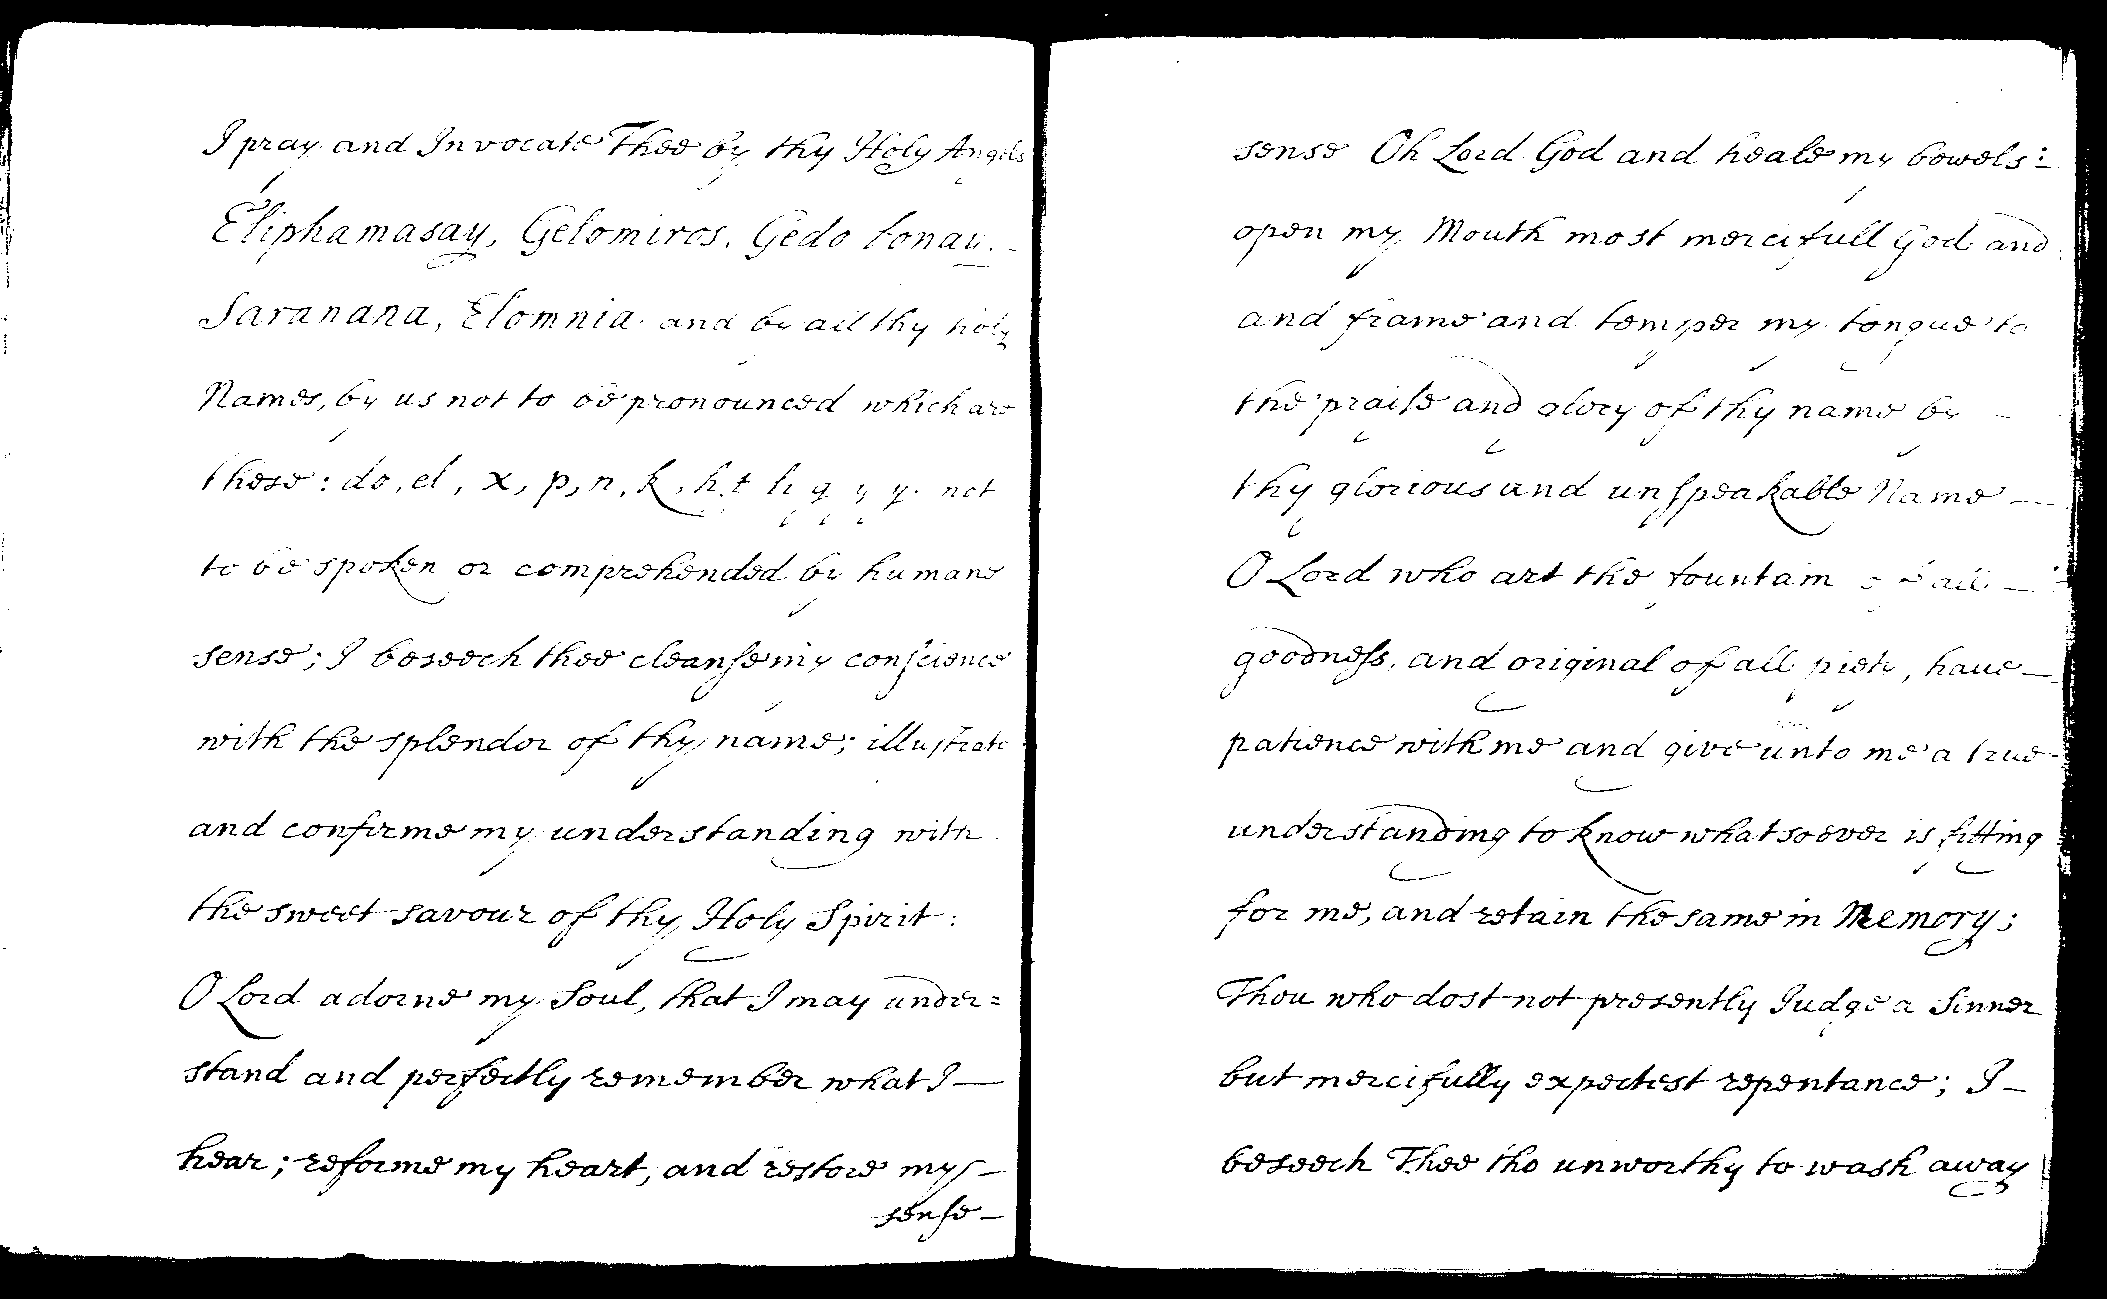 I pray and Invocate Thee by thy Holy Angels
Eliphamasay, Gelomiros, Gedo bonay.
Saranana, Elomnia. and by all thy holy
Names, by us not to be pronounced which are
these: do, el, x, p, n, k, h, t h g y y. not
to be spoken or comprehended by humane
sense; I beseech thee cleanse my conscience
with the splendor of thy name; illustrate
and confirme my understanding with
the sweet savour of thy Holy Spirit:
O Lord adorne my Soul, that I may under=
stand and perfectly remember what I —
hear; reforme my heart, and restore my —
sense —
sense Oh Lord God and heale my bowels:
open my Mouth most mercifull God and
and frame and temper my tongue to
the praise and glory of thy name by —
thy glorious and unspeakable Name —
O Lord who art the fountain of all —
goodness, and original of all piety, have —
patience with me and give unto me a true
understanding to know whatsoever is fitting
for me, and retain the same in Memory;
Thou who dost not presently Judge a Sinner
but mercifully expectest repentance; I —
beseech Thee tho unworthy to wash away